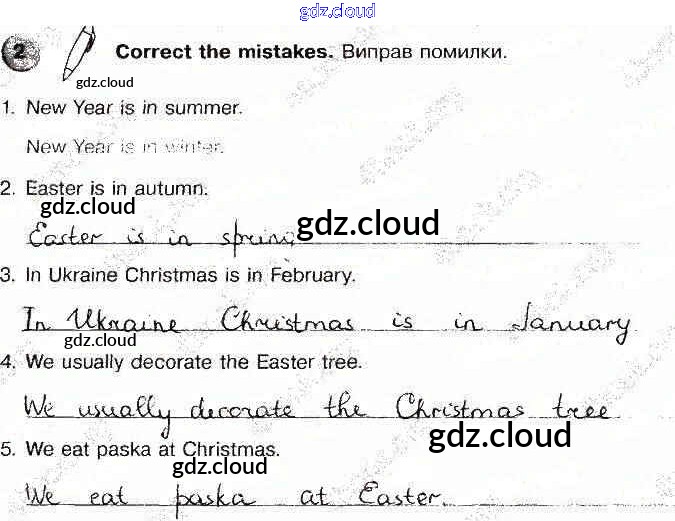 gdz.cloud
2 Correct the mistakes. Виправ помилки.
gdz.cloud
1. New Year is in summer.
New Year is in winter.
2. Easter is in autumn.
gdz.cloud
Easter is in spring
gdz.cloud
3. In Ukraine Christmas is in February.
In Ukraine Christmas is in January
gdz.cloud
4. We usually decorate the Easter tree.
We usually decorate the Christmas tree
gdz.cloud
5. We eat paska at Christmas.
gdz.cloud
We eat paska at Easter.